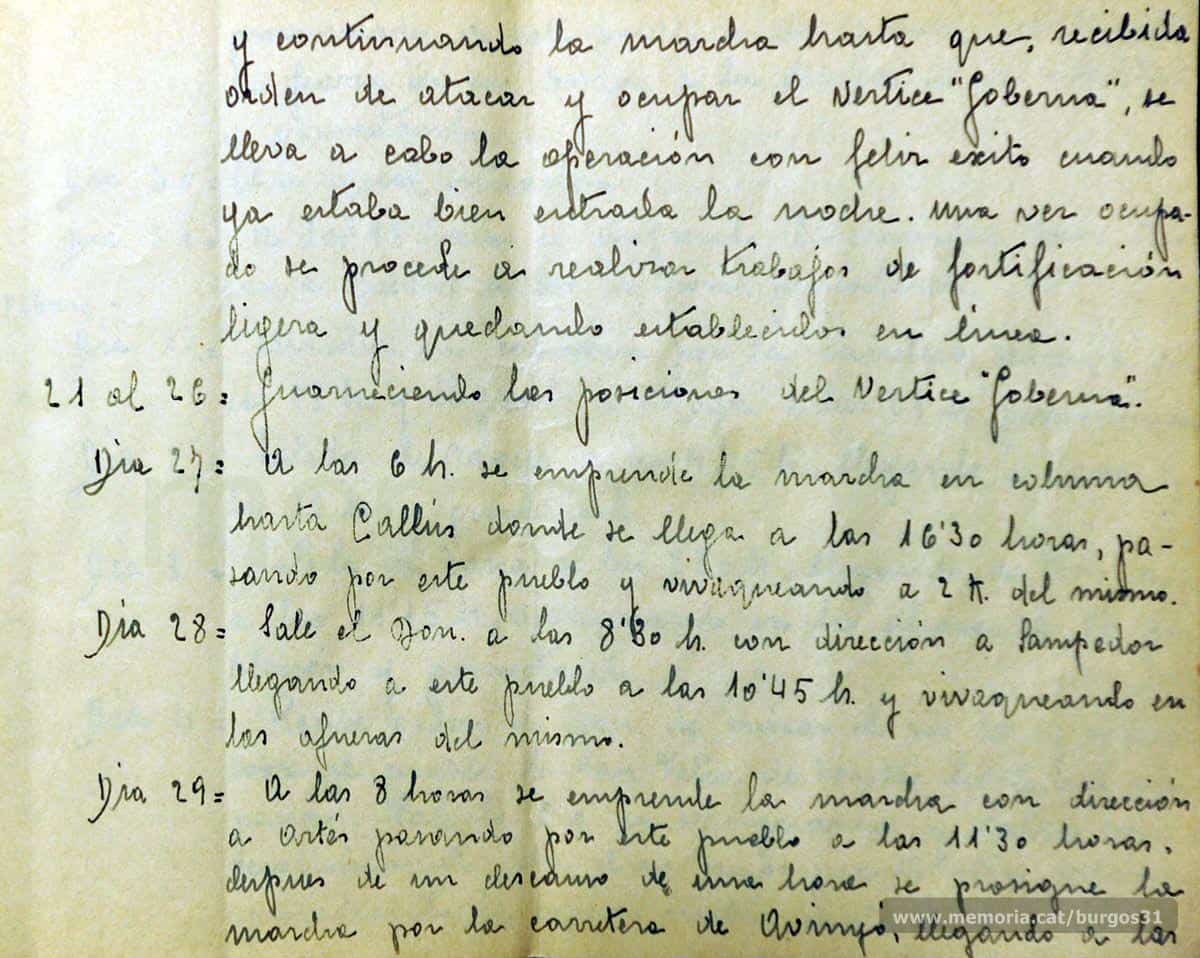 y continuando la marcha hasta que, recibida
orden de atacar y ocupar el Vertice "Goberna", se
lleva a cabo la operación con feliz exito cuando
ya estaba bien entrada la noche. Una vez ocupa-
do se procede a realizar trabajos de fortificación
ligera y quedando establecidos en linea.
21 al 26 = Guarneciendo las posiciones del Vertice "Goberna".
Dia 27 = A las 6 h. se emprende la marcha en columna
hasta Callús donde se llega a las 16'30 horas, pa-
sando por este pueblo y vivaqueando a 2 K. del mismo.
Dia 28 = Sale el Bon. a las 8'30 h. con dirección a Sampedor
llegando a este pueblo a las 10'45 h. y vivaqueando en
las afueras del mismo.
Dia 29 = A las 8 horas se emprende la marcha con dirección
a Artés pasando por este pueblo a las 11'30 horas.
despues de un descanso de una hora se prosigue la
marcha por la carretera de Avinyó, llegando a las
www.memoria.cat/burgos31